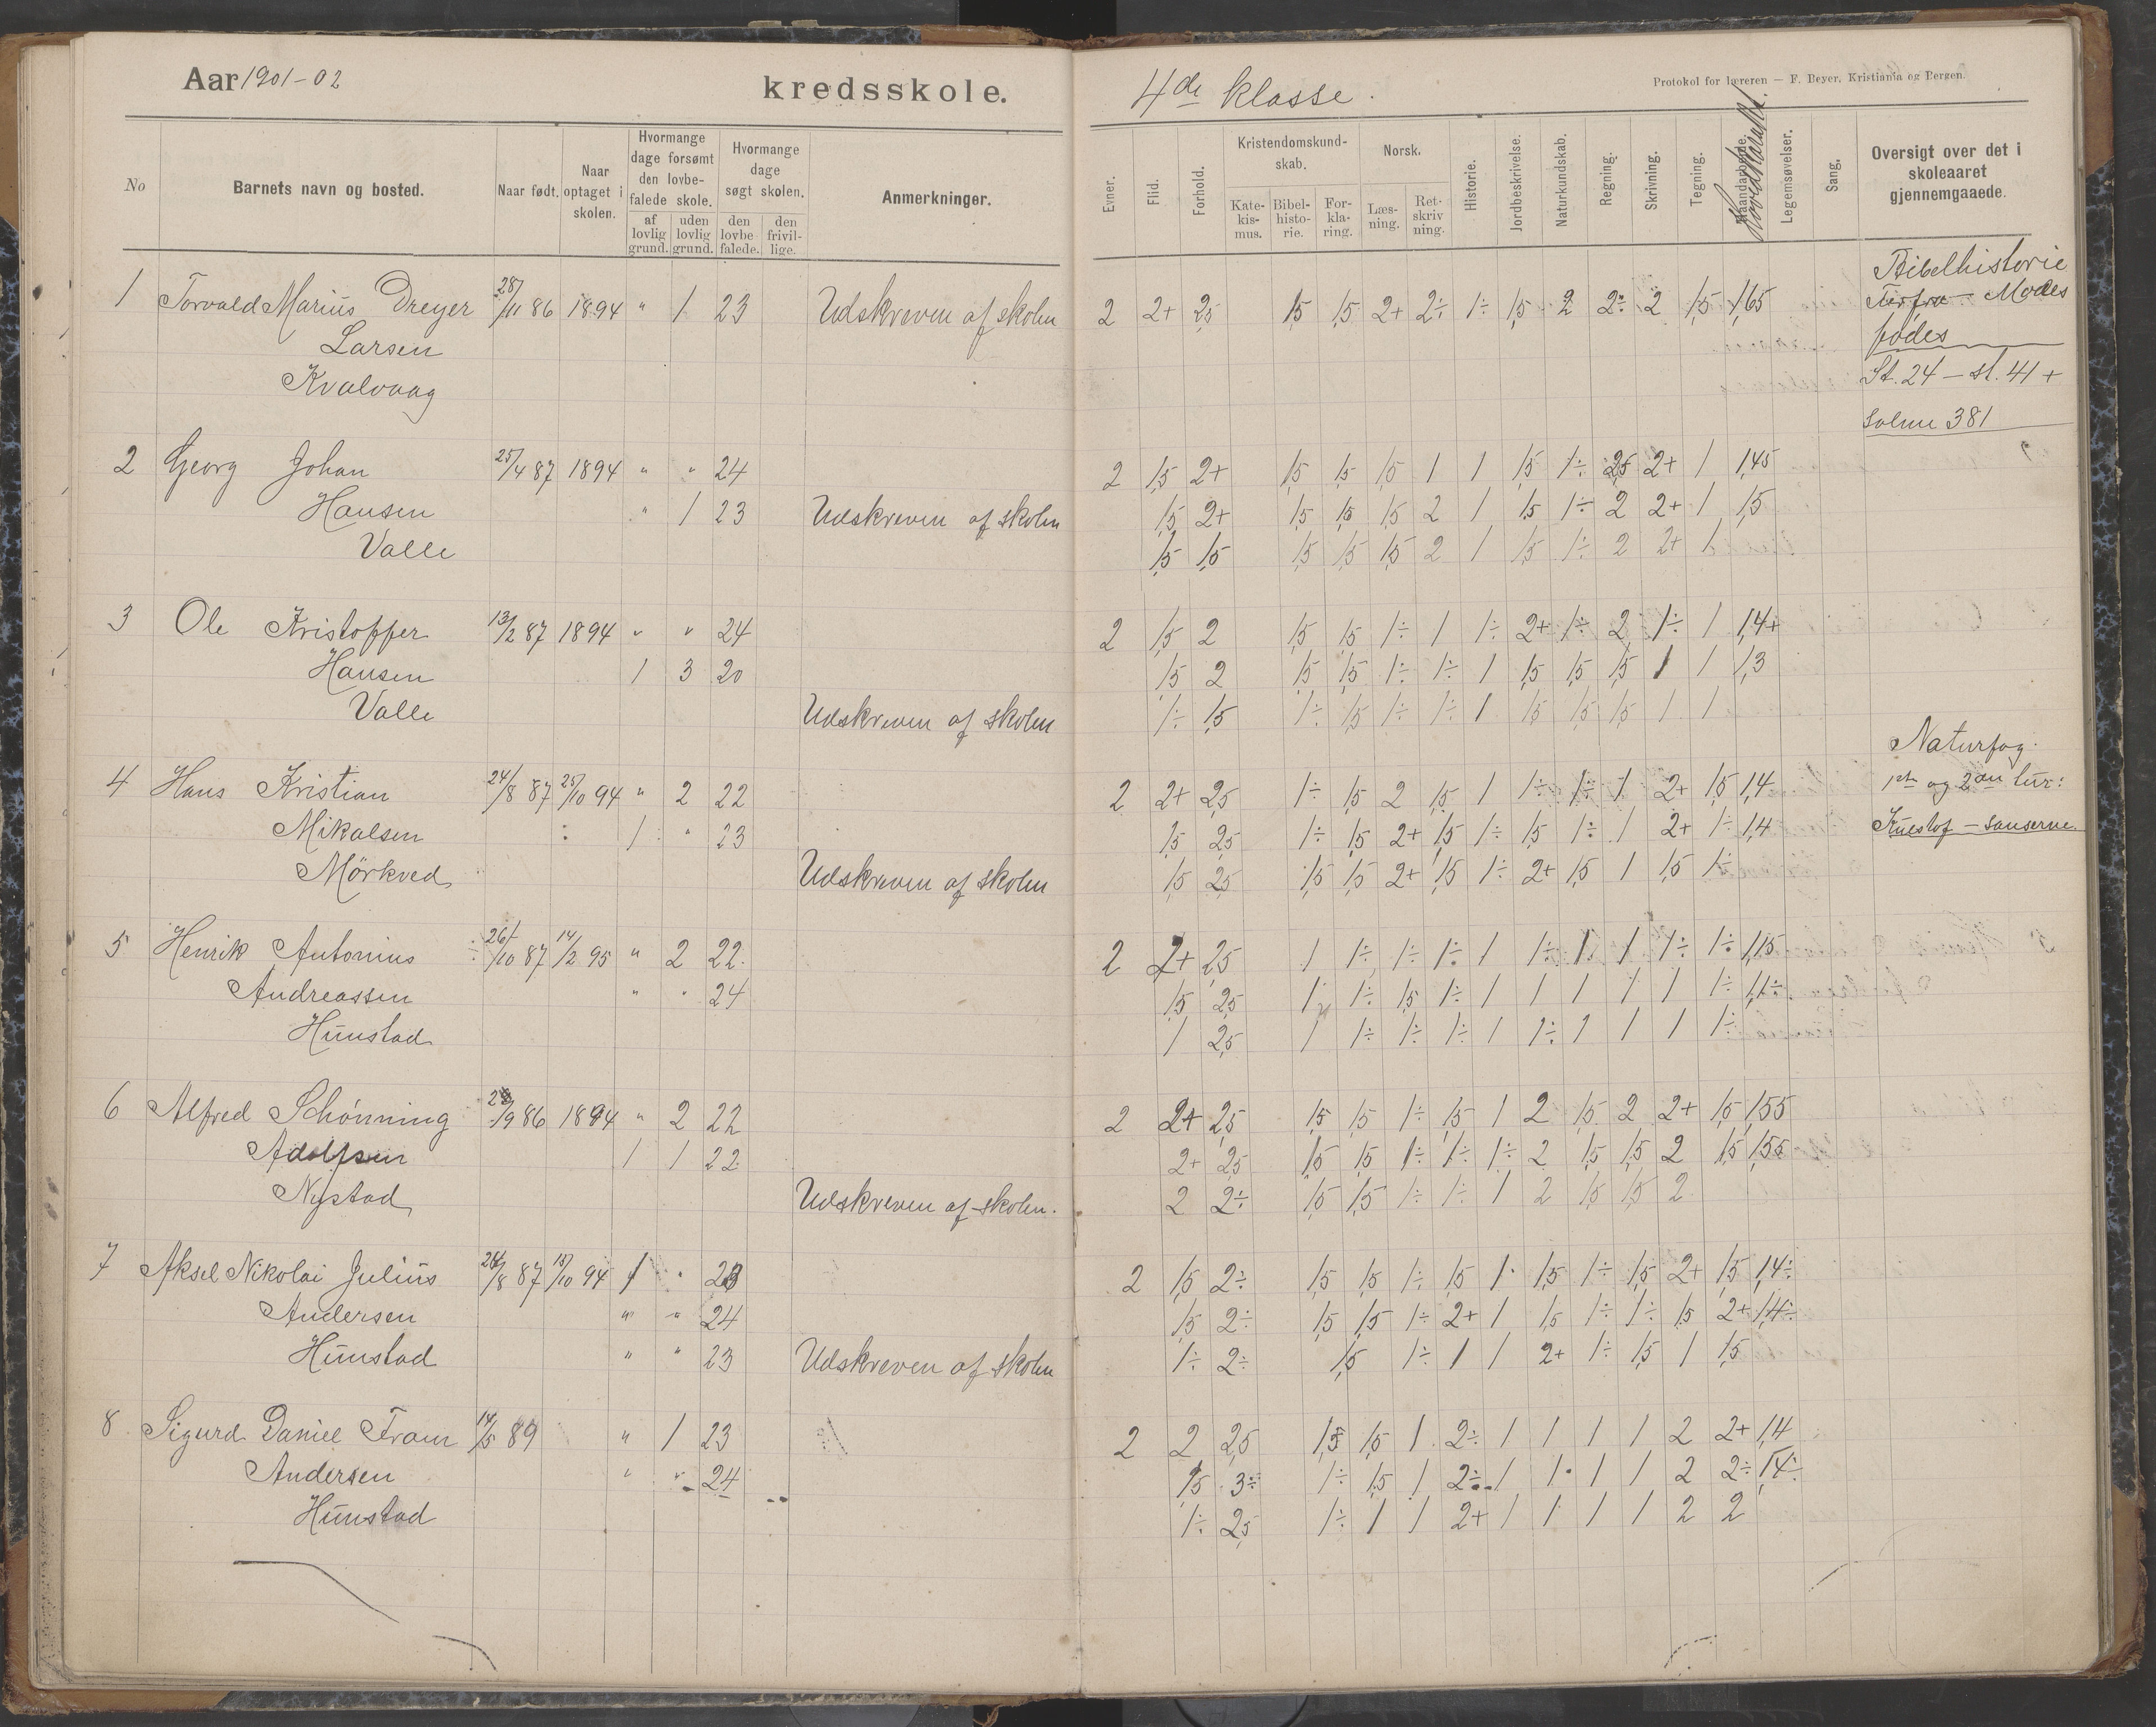 Aar 1901-02
kredsskole.
No
Barnets navn og bosted.
Naar født.
Naar optaget i skolen.
Hvormange dage forsømt den lovbefalede skole.
af lovlig grund.
uden lovlig grund.
Hvormange dage søgt skolen.
den lovbefalede.
den frivillige.
Anmerkninger.
1 Torvald Marius Dreyer 28/11 86 1894 " 1 23 Udskreven af skolen
Larsen
Kvalvaag
2 Georg Johan 25/4 87 1894 " " 24
Hansen " 1 23 Udskreven af skolen
Valle
3 Ole Kristoffer 13/2 87 1894 " " 24
Hansen 1 3 20
Valle Udskreven af skolen
4 Hans Kristian 24/8 87 25/10 94 " 2 22
Mikalsen 1 " 23
Mörkved Udskreven af skolen
5 Henrik Antonius 26/10 87 14/2 95 " 2 22
Andreassen " " 24
Hunstad
6 Alfred Schönning /9 86 1894 " 2 22
Adolfsen 1 1 22
Nystad Udskreven af skolen.
7 Aksel Nikolai Julius 24/8 87 15/10 94 1 " 23
Andersen " " 24
Hunstad " " 23 Udskreven af skolen
8 Sigurd Daniel Fram 14/5 89 " 1 23
Andersen " " 24
Hunstad
4de klasse.
Protokol for læreren — F. Beyer, Kristiania og Bergen.
Evner.
Flid.
Forhold.
Kristendomskundskab.
Katekismus.
Bibelhistorie.
Forklaring.
Norsk.
Læsning.
Retskrivning.
Historie.
Jordbeskrivelse.
Naturkundskab.
Regning.
Skrivning.
Tegning.
Haandarbeide.
Hovedkarakt.
Legemsøvelser.
Sang.
Oversigt over det i skoleaaret gjennemgaaede.
2 2+ 2,5 1,5 1,5 2+ 2÷ 1÷ 1,5 2 2÷ 2 1,5 1,65
2 1,5 2+ 1,5 1,5 1,5 1 1 1,5 1÷ 2,5 2+ 1 1,45
1,5 2+ 1,5 1,5 1,5 2 1 1,5 1÷ 2 2+ 1 1,5
1,5 1,5 1,5 1,5 1,5 2 1 1,5 1÷ 2 2+ 1
2 1,5 2 1,5 1,5 1÷ 1 1÷ 2+ 1÷ 2 1÷ 1 1,4+
1,5 2 1,5 1,5 1÷ 1÷ 1 1,5 1,5 1,5 1 1 1,3
1÷ 1,5 1÷ 1,5 1÷ 1÷ 1 1,5 1,5 1,5 1 1
2 2+ 2,5 1÷ 1,5 2 1,5 1 1÷ 1÷ 1 2+ 1,5 1,4÷
1,5 2,5 1÷ 1,5 2+ 1,5 1÷ 1,5 1÷ 1 2+ 1÷ 1,4
1,5 2,5 1,5 1,5 2+ 1,5 1÷ 2+ 1,5 1 1,5 1÷
2 2+ 2,5 1 1÷ 1÷ 1÷ 1 1÷ 1 1 1÷ 1÷ 1,15
1,5 2,5 1 1÷ 1,5 1÷ 1 1 1 1 1 1÷ 1,1÷
1 2,5 1 1÷ 1÷ 1÷ 1 1÷ 1 1 1 1÷
2 2+ 2,5 1,5 1,5 1÷ 1,5 1 2 1,5 2 2+ 1,5 1,55
2+ 2,5 1,5 1,5 1÷ 1÷ 1÷ 2 1,5 1,5 2 1,5 1,55
2 2÷ 1,5 1,5 1÷ 1÷ 1 2 1,5 1,5 2
2 1,5 2÷ 1,5 1,5 1÷ 1,5 1 1,5 1÷ 1,5 2+ 1,5 1,4÷
1,5 2÷ 1,5 1,5 1÷ 2+ 1 1,5 1÷ 1÷ 1,5 2+ 1,4÷
1÷ 2÷ 1,5 1÷ 1 1 2+ 1÷ 1,5 1 1,5
2 2 2,5 1,5 1,5 1 2÷ 1 1 1 1 2 2+ 1,4
1,5 3÷ 1÷ 1,5 1 2÷ 1 1 1 1 2 2÷ 1,4÷
1÷ 2,5 1÷ 1 1 2+ 1 1 1 1 2 2
Bibelhistorie
Moses
fødes
St. 24 - st. 41 +
Salme 381
Naturfag.
1ste og 2den kur:
Knestof - sanserne